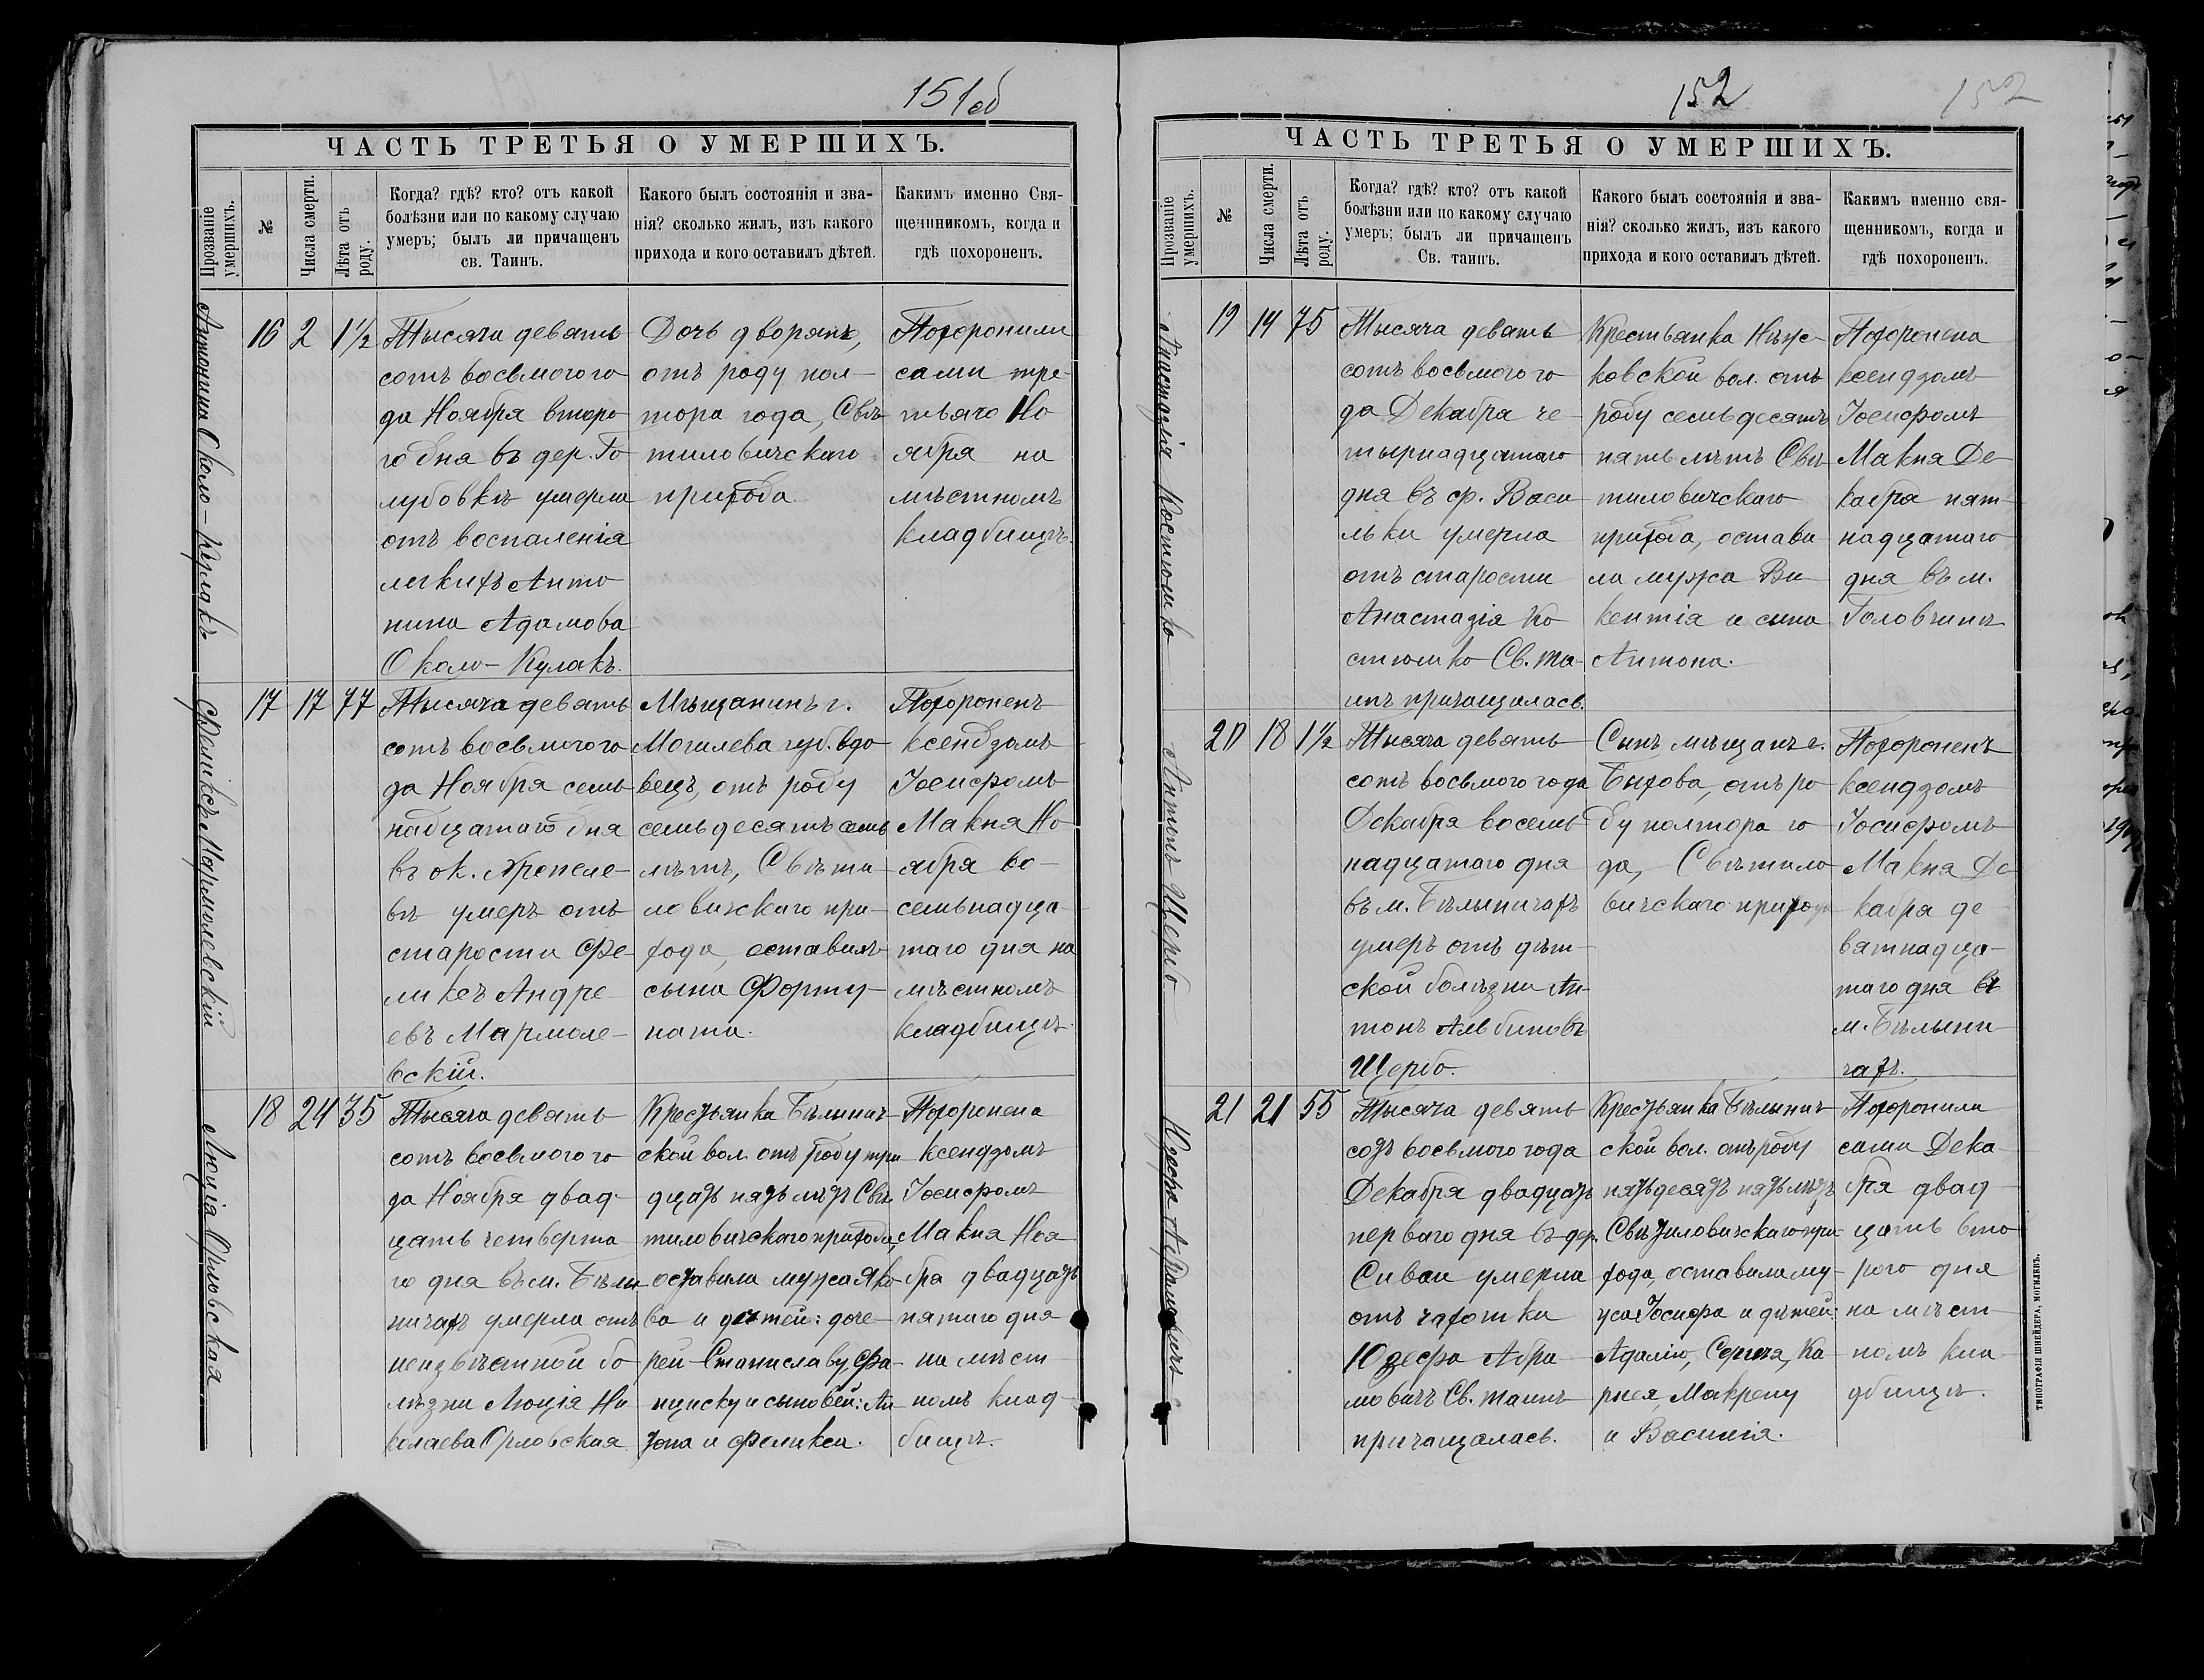 151об
ЧАСТЬ ТРЕТЬЯ О УМЕРШИХЪ.
Прозваніе умершихъ.
№
Числа смерти.
Лѣта отъ роду.
Когда? гдѣ? кто? отъ какой
болѣзни или по какому случаю
умеръ; былъ ли причащенъ
св. Таинъ.
Какого былъ состоянія и зва-
нія? сколько жилъ, изъ какого
прихода и кого оставилъ дѣтей.
Какимъ именно Свя-
щенникомъ, когда и
гдѣ похороненъ.
Антонина Около-Кулакъ
16
2
1½
Тысяча девять
сотъ восьмого го
да Ноября второ
го дня въ дер. Го
лубовкѣ умерла
отъ воспаленія
легкихъ Анто
нина Адамова
Около-Кулакъ.
Дочь дворянъ,
отъ роду пол-
тора года, Свѣ
тиловичскаго
прихода
Похоронили
сами тре-
тьяго Но
ября на
мѣстномъ
кладбищѣ.
Феликсъ Мармолевскій
17
17
77
Тысяча девять
сотъ восьмого го
да Ноября семь
надцатаго дня
въ ок.
вѣ умеръ отъ
старости Фе-
ликсъ Андре
евъ Мармоле-
вскій.
Мѣщанинъ г.
Могилева губ. вдо
вецъ, отъ роду
семьдесятъ семь
лѣтъ, Свѣти
ловичскаго при-
хода, оставилъ
сына Форту-
ната.
Похороненъ
ксендзомъ
Іосифомъ
Макня Но
ября во-
семьнадца-
таго дня на
мѣстномъ
кладбищѣ.
Люція Орловская
18
24
35
Тысяча девять
сотъ восьмого го
да Ноября двад-
цать четверта
го дня въ м. Бѣлы
ничахъ умерла отъ
неизвѣстной бо
лѣзни Люція Ни
колаева Орловская
Крестьянка Бѣлынич
ской вол. отъ роду три
дцать пять лѣтъ Свѣ
тиловичскаго прихода,
оставила мужа Яко
ва и дѣтей: доче-
рей Станиславу, Фра-
нциску и сыновей: Ан
тона и Феликса.
Похоронена
ксендзомъ
Іосифомъ
Макня Ноя
бра двадцать
пятаго дня
на мѣст
номъ клад-
бищѣ.
152
152
ЧАСТЬ ТРЕТЬЯ О УМЕРШИХЪ.
Прозваніе умершихъ.
№
Числа смерти.
Лѣта отъ роду.
Когда? гдѣ? кто? отъ какой
болѣзни или по какому случаю
умеръ; былъ ли причащенъ
Св. таинъ.
Какого былъ состоянія и зва-
нія? сколько жилъ, изъ какого
прихода и кого оставилъ дѣтей.
Какимъ именно свя-
щенникомъ, когда и
гдѣ похороненъ.
Анастазія Костюшко
19
14
75
Тысяча девять
сотъ восьмого го
да Декабра че-
тырнадцатаго
дня въ ф. Васи
льки умерла
отъ старости
Анастазія Ко
стюшко Св. та-
инъ причащалась.
Крестьянка
ковской вол. отъ
роду семьдесятъ
пять лѣтъ Свѣ
тиловичскаго
прихода, остави
ла мужа Ви
кентія и сына
Антона.
Похоронена
ксендзомъ
Іосифомъ
Макня Де
кабра пят-
надцатаго
дня въ м.
Головчинѣ
Антонъ Щербо
20
18
1½
Тысяча девять
сотъ восьмого года
Декабря восемь
надцатаго дня
въ м. Бѣлыничахъ
умеръ отъ дѣт-
ской болѣзни Ан-
тонъ Альбиновъ
Щербо.
Сынъ мѣщанъ г.
Быхова, отъ ро
ду полтора го
да, Свѣтило
вичскаго прихода
Похороненъ
ксендзомъ
Іосифомъ
Макня Де
кабря де
вятнадца-
таго дня въ
м. Бѣлыни
чахъ.
Юзефа Абрамовичъ
21
21
55
Тысяча девять
сотъ восьмого года
Декабря двадцать
перваго дня въ дер.
Сиваи умерла
отъ чахотки
Юзефа Абра
мовичъ Св. таинъ
причащалась.
Крестьянка Бѣлынич
ской вол. отъ роду
пятьдесятъ пять лѣтъ
Свѣтиловичскаго при
хода, оставила му-
жа Іосифа и дѣтей:
Адалію, Сергея, Ка
рнея, Макрену
и Василія.
Похоронили
сами Дека
бря двад
цать вто
рого дня
на мѣст
номъ кла
дбищѣ.
ТИПОГРАФІЯ ШНЕЙДЕРА, МОГИЛЕВЪ.